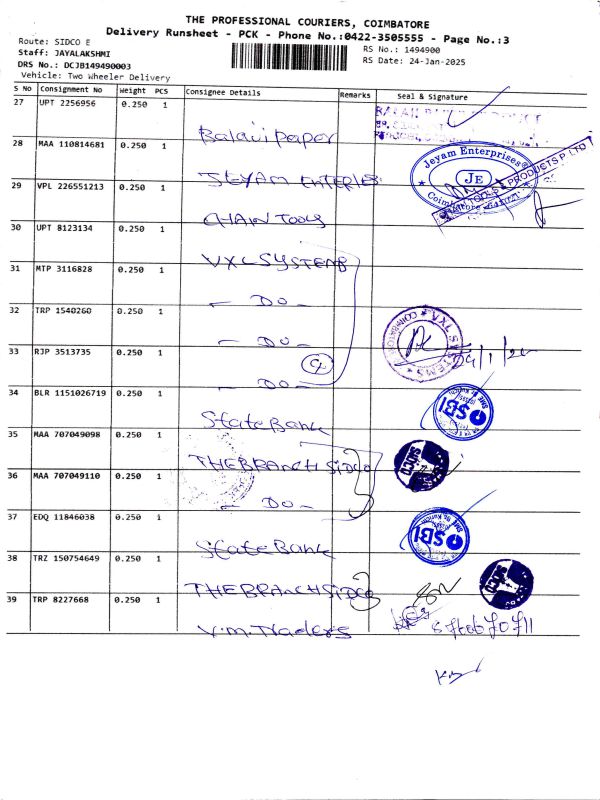 THE PROFESSIONAL COURIERS, COIMBATORE
Delivery Runsheet - PCK - Phone No.:0422-3505555 - Page No.:3
Route: SIDCO E
RS No.: 1494900
Staff: JAYALAKSHMI
RS Date: 24-Jan-2025
DRS No.: DCJB149490003
Vehicle: Two Wheeler Delivery
S No Consignment No Weight PCS Consignee Details Remarks Seal & Signature
27 UPT 2256956 0.250 1
Balaji paper
28 MAA 110814681 0.250 1
Jeyam Enterprises®
JE
PRODUCTS P LTD
29 VPL 226551213 0.250 1
CHAIN TOOLS
30 UPT 8123134 0.250 1
VXL SYSTEMS
31 MTP 3116828 0.250 1
- DO -
32 TRP 1540260 0.250 1
- DO -
VXL SYSTEMS
33 RJP 3513735 0.250 1
- DO -
34 BLR 1151026719 0.250 1
State Bank
SBI
35 MAA 707049098 0.250 1
THE BRANCH SIDCO
SIDCO
36 MAA 707049110 0.250 1
- DO -
37 EDQ 11846038 0.250 1
State Bank
SBI
38 TRZ 150754649 0.250 1
THE BRANCH SIDCO
SIDCO
39 TRP 8227668 0.250 1
V.M. Traders